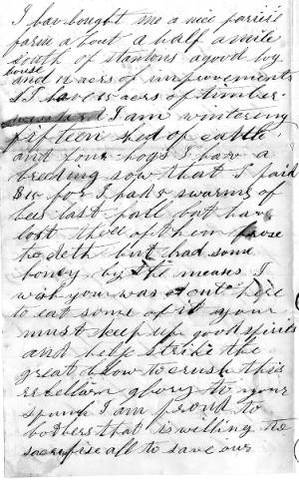 I hav bought me a nice pariei
farm about a half a mile
south of stantons a good log
house
and 12 acrs of improvements
I have 15 acrs of timber
I am wintering
fifteen hed of cattle
and four hogs I hav a
breeding sow that I paid
$15 for I had 4 swarms of
bees last fall but hav
lost three of them froze
to deth but had some
honey by the means I
wish you was out here
to eat some of it your
must keep up good spirits
and help strike the
great blow to crush this
rebellion glory to your
spunk I am proud to
that is willing to
sacrifise all to save our